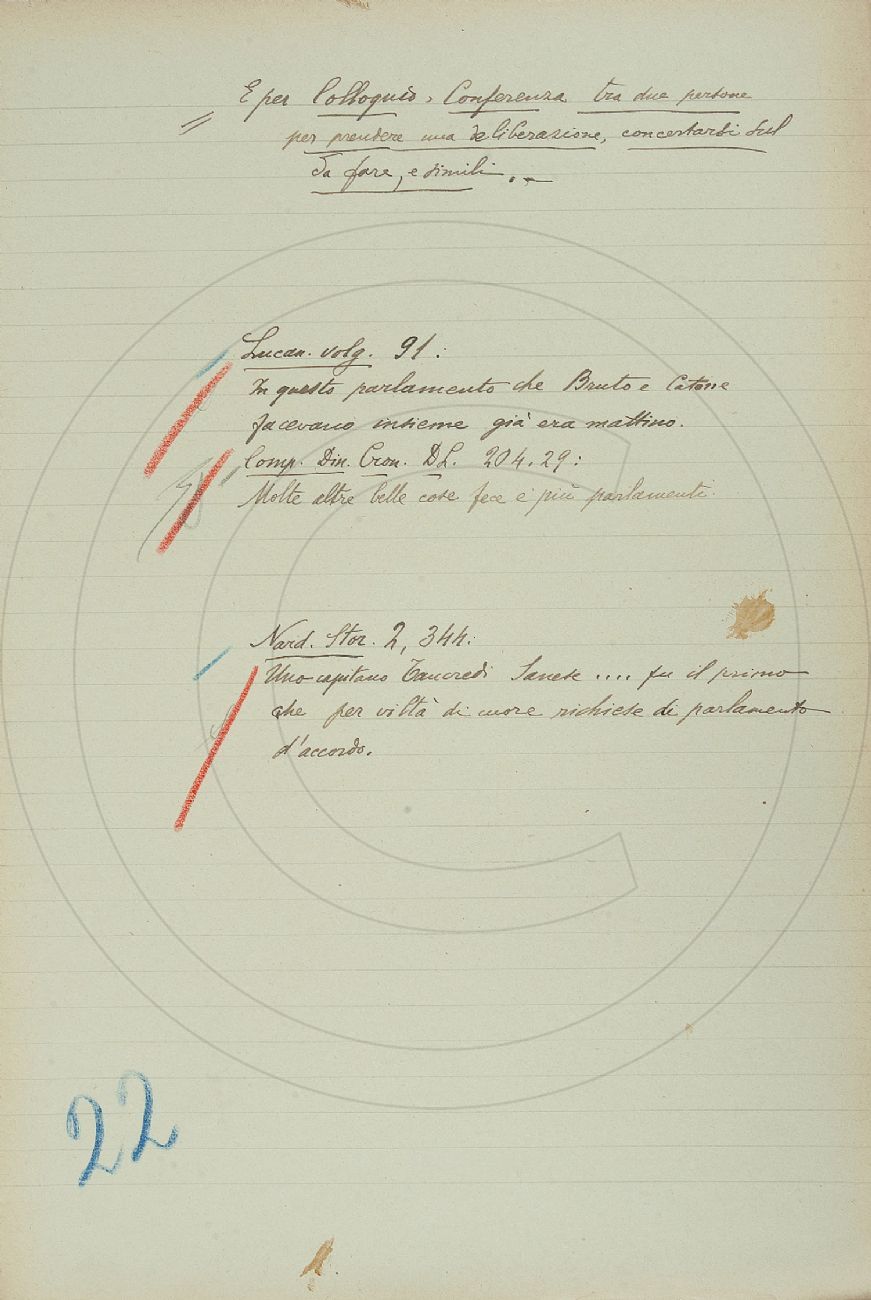 E per Colloquio, Conferenza tra due persone
per prendere una deliberazione, concertarsi sul
da fare, e simili. –
Lucan. volg. 91:
In questo parlamento che Bruto e Catone
facevano insieme già era mattino.
Comp. Din. Cron. DL. 204.29:
Molte altre belle cose fece e più parlamenti.
Nard. Stor. 2, 344:
Uno capitano Tancredi Sanese .... fu il primo
che per viltà di cuore richiese di parlamento
d'accordo.
22